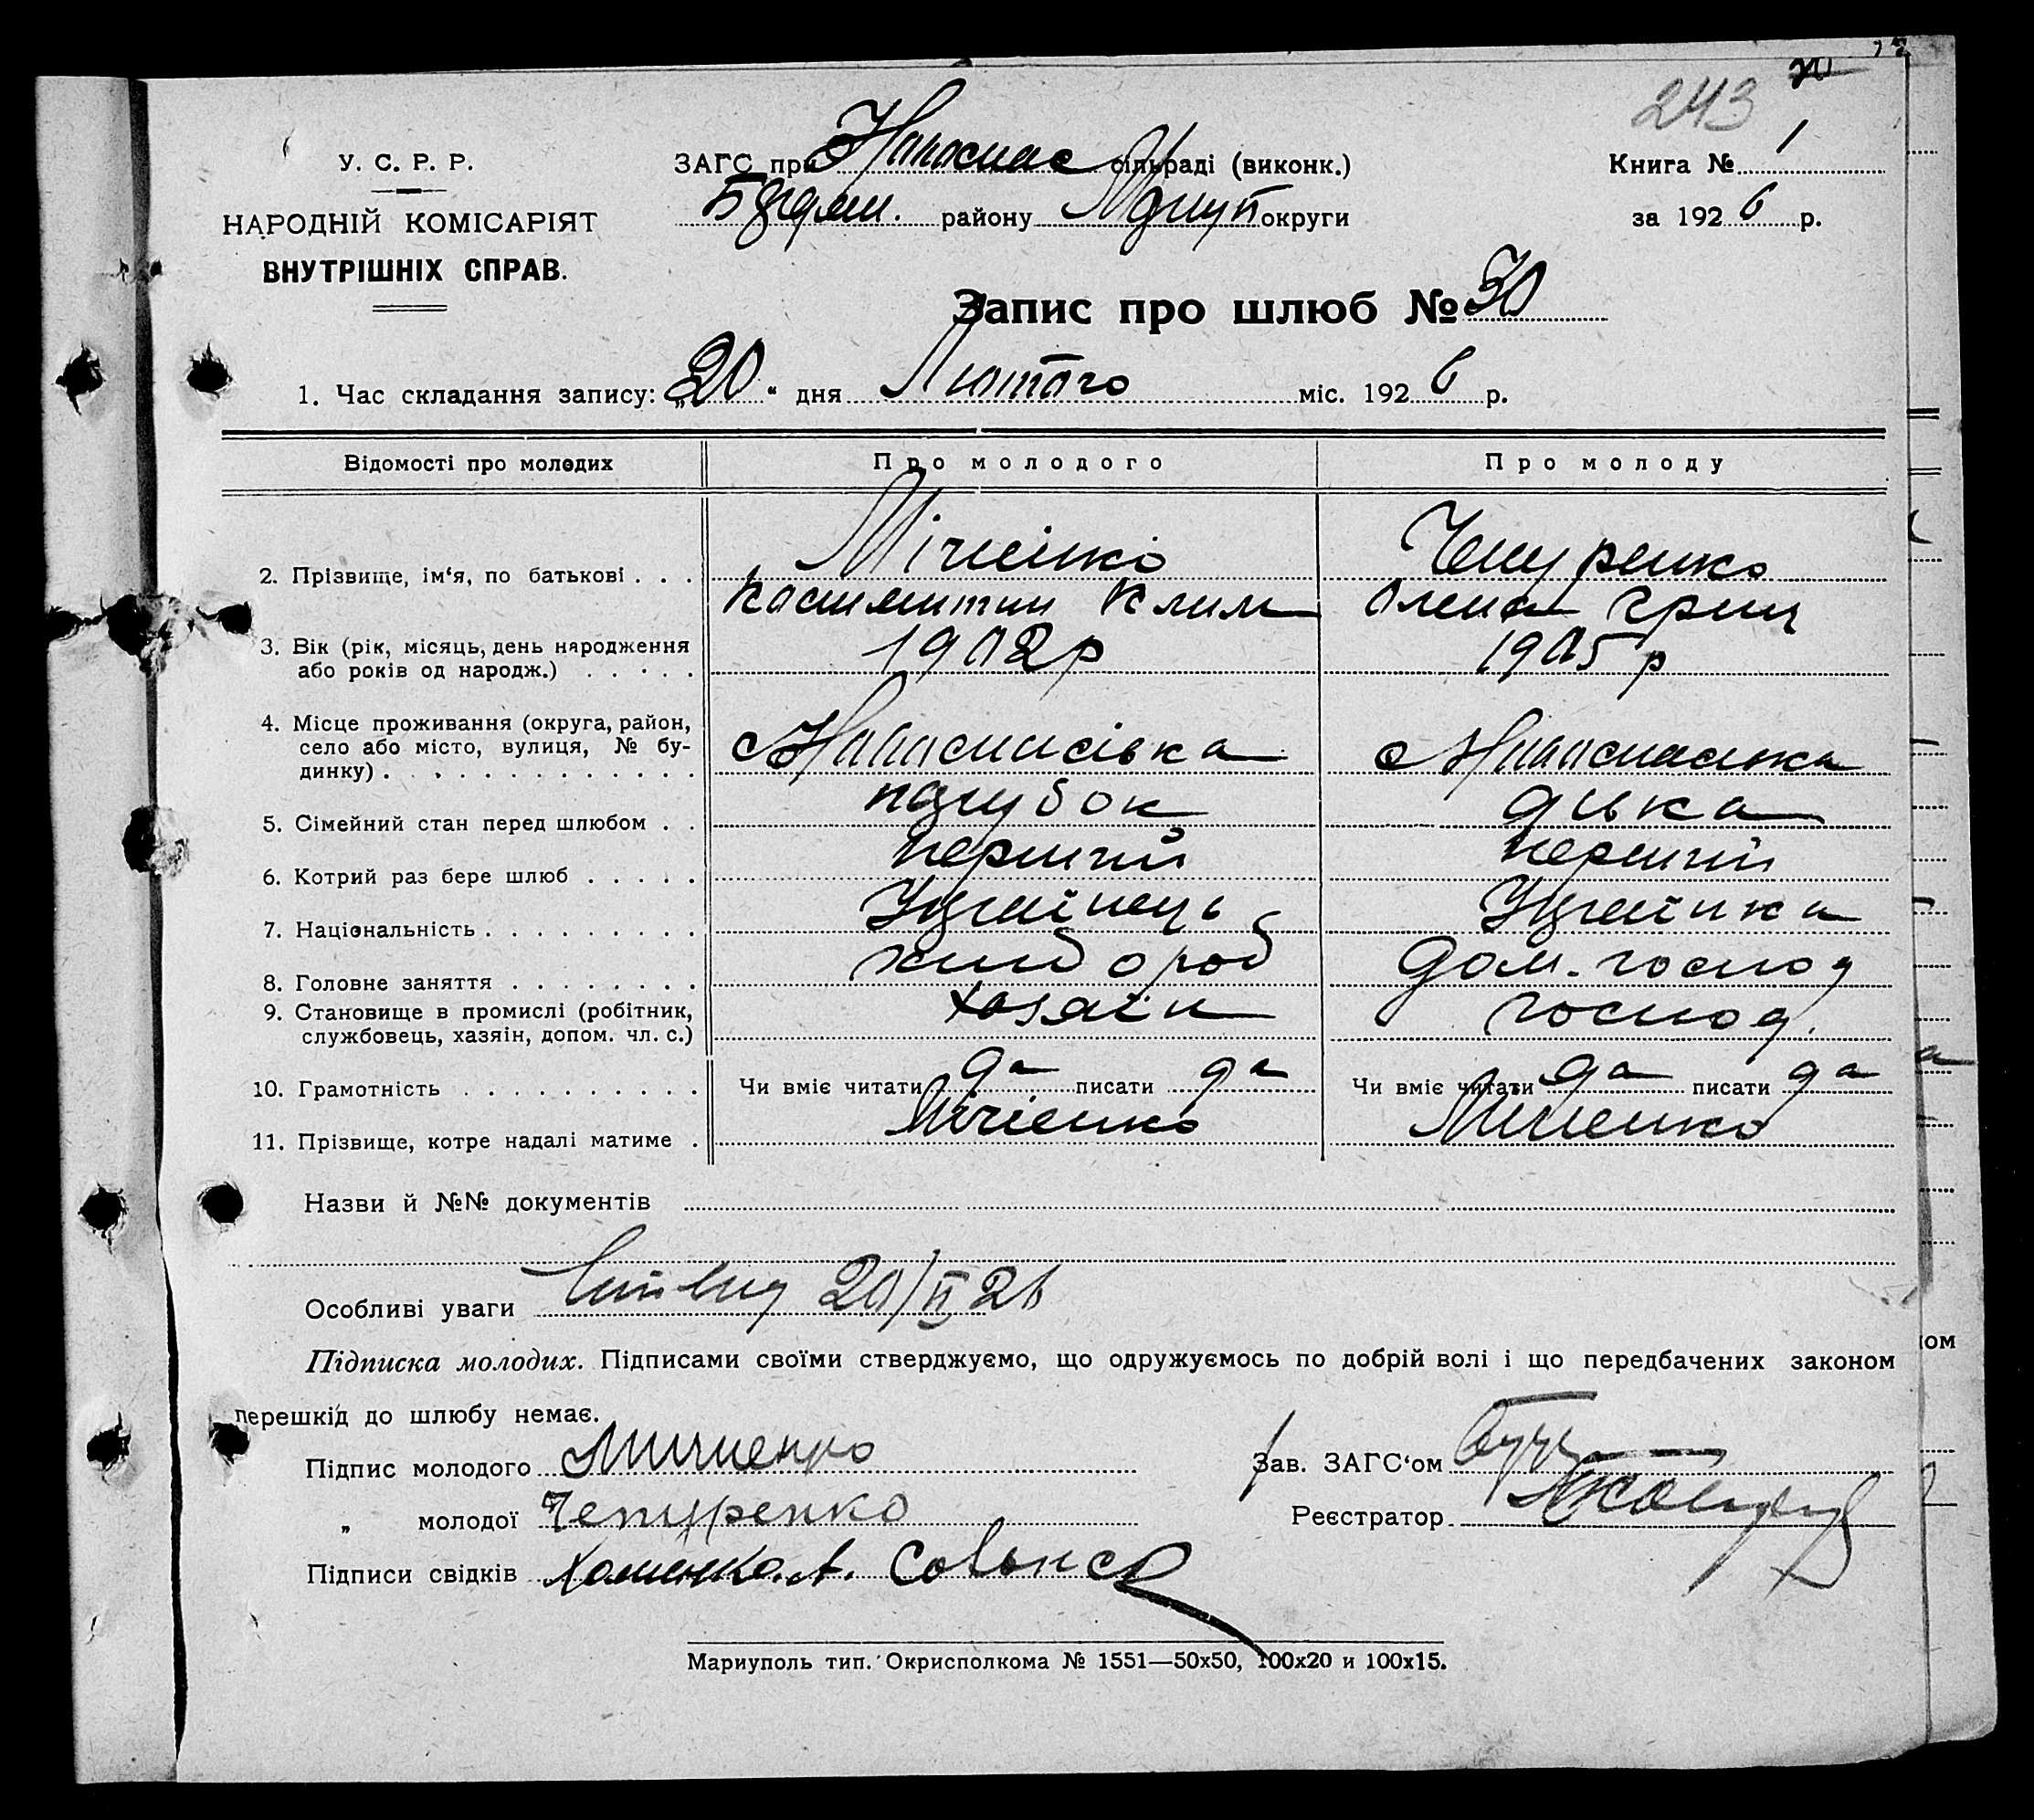 243
У. С. Р. Р.
ЗАГС при Новоспас сільраді (виконк.)
Книга № 1
НАРОДНІЙ КОМІСАРІЯТ
району Маріуп округи
за 1926 р.
ВНУТРІШНІХ СПРАВ.
Запис про шлюб № 30
1. Час складання запису: „20“ дня Лютого міс. 1926 р.
Відомості про молодих
Про молодого
Про молоду
2. Прізвище, ім‘я, по батькові . . .
Костянтин Клим
Чепуренко
Олена Гриц
3. Вік (рік, місяць, день народження
або років од народж.) . . . . .
1902р
1905 р
4. Місце проживання (округа, район,
село або місто, вулиця, № бу-
динку) . . . . . . . . . . . .
с Новоспасівка
с Новоспасівка
5. Сімейний стан перед шлюбом . .
парубок
дівка
6. Котрий раз бере шлюб . . . . .
перший
перший
7. Національність . . . . . . . . .
Українець
Українка
8. Головне заняття . . . . . . . .
хлібороб
дом. господ
9. Становище в промислі (робітник,
службовець, хазяін, допом. чл. с.)
хозаїн
господ.
10. Грамотність . . . . . . . . . .
Чи вміє читати да писати да
Чи вміє читати да писати да
11. Прізвище, котре надалі матиме .
Назви й №№ документів
Особливі уваги 20/II 26
Підписка молодих. Підписами своїми стверджуємо, що одружуємось по добрій волі і що передбачених законом
перешкід до шлюбу немає.
Підпис молодого
Зав. ЗАГС‘ом
„ молодої Чепуренко
Реєстратор
Підписи свідків Хоменко. А.
Мариуполь тип. Окрисполкома № 1551—50х50, 100х20 и 100х15.
ом